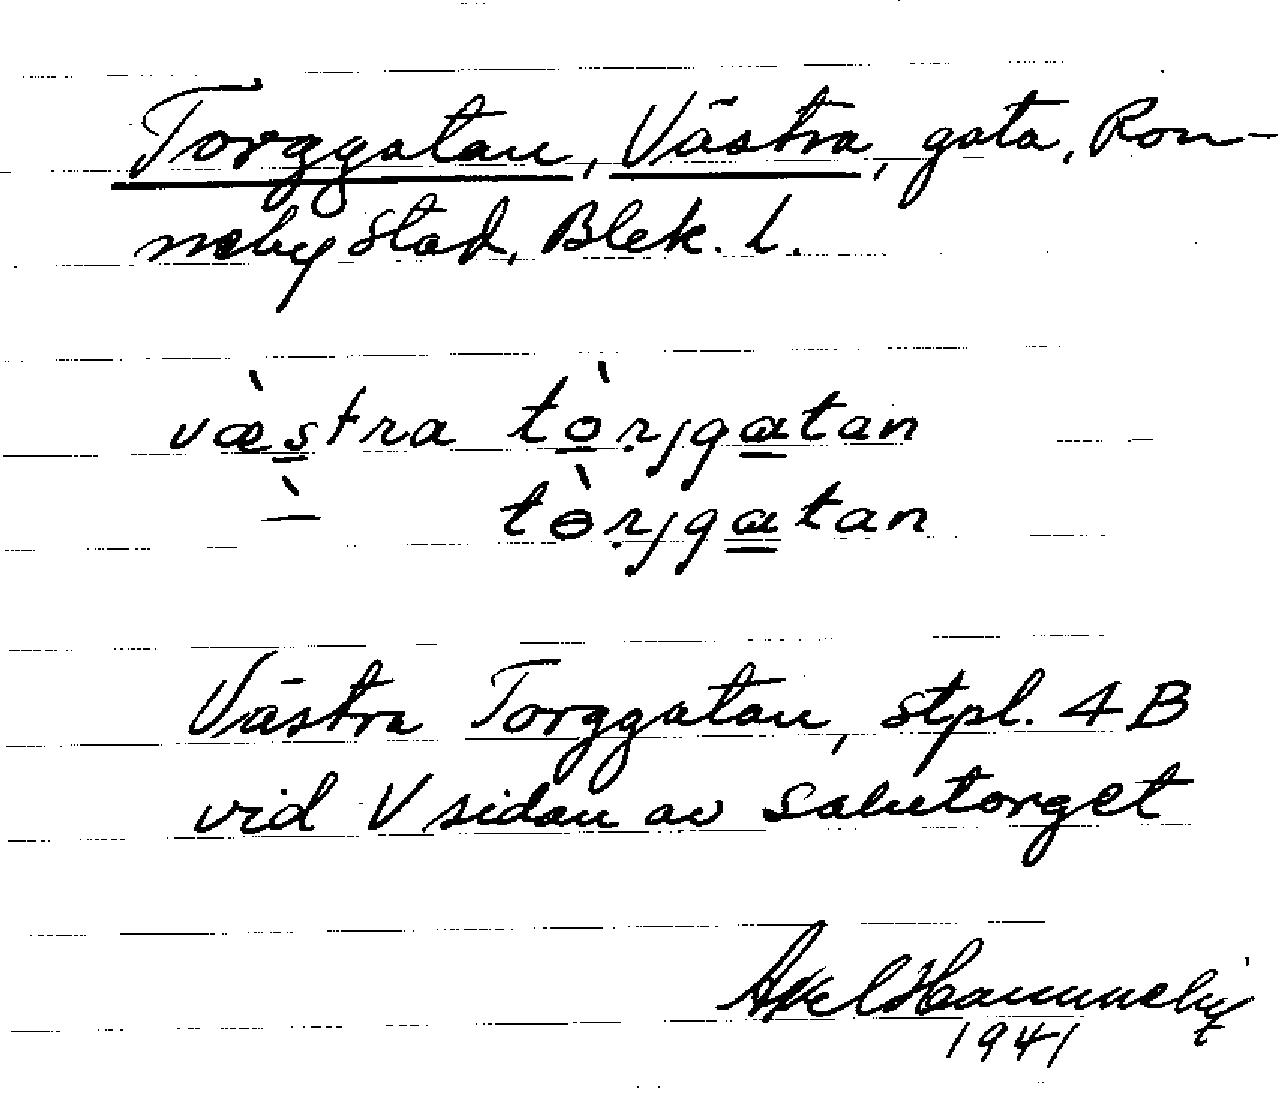 Torggatan, Västra, gata, Ron-
neby stad, Blek. l.
væ̀stra tòrjgatan
–̀ tɵ̀rjgatan
Västra Torggatan, stpl. 4 B
vid V sidan av salutorget
Axel Hammneby
1941